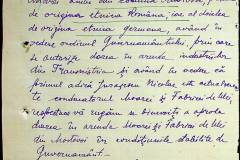 de origina etnica Română, iar al doilea
de origina etnica germana, având în
vedere ordinul Guvernamântului, prin care
se autoriză darea în arendă industriilor
din Transnistria și având în vedere că
primul adică Gheorghiu Nicolae este actualmente
conducatorul Moarei și Fabricei de Ulei
respectuos vă rugăm să binevoiți a aproba
darea în arendă Moarei și Fabricei de Ulei
din Mostovoi în condițiunile stabilite de
Guvernamânt.